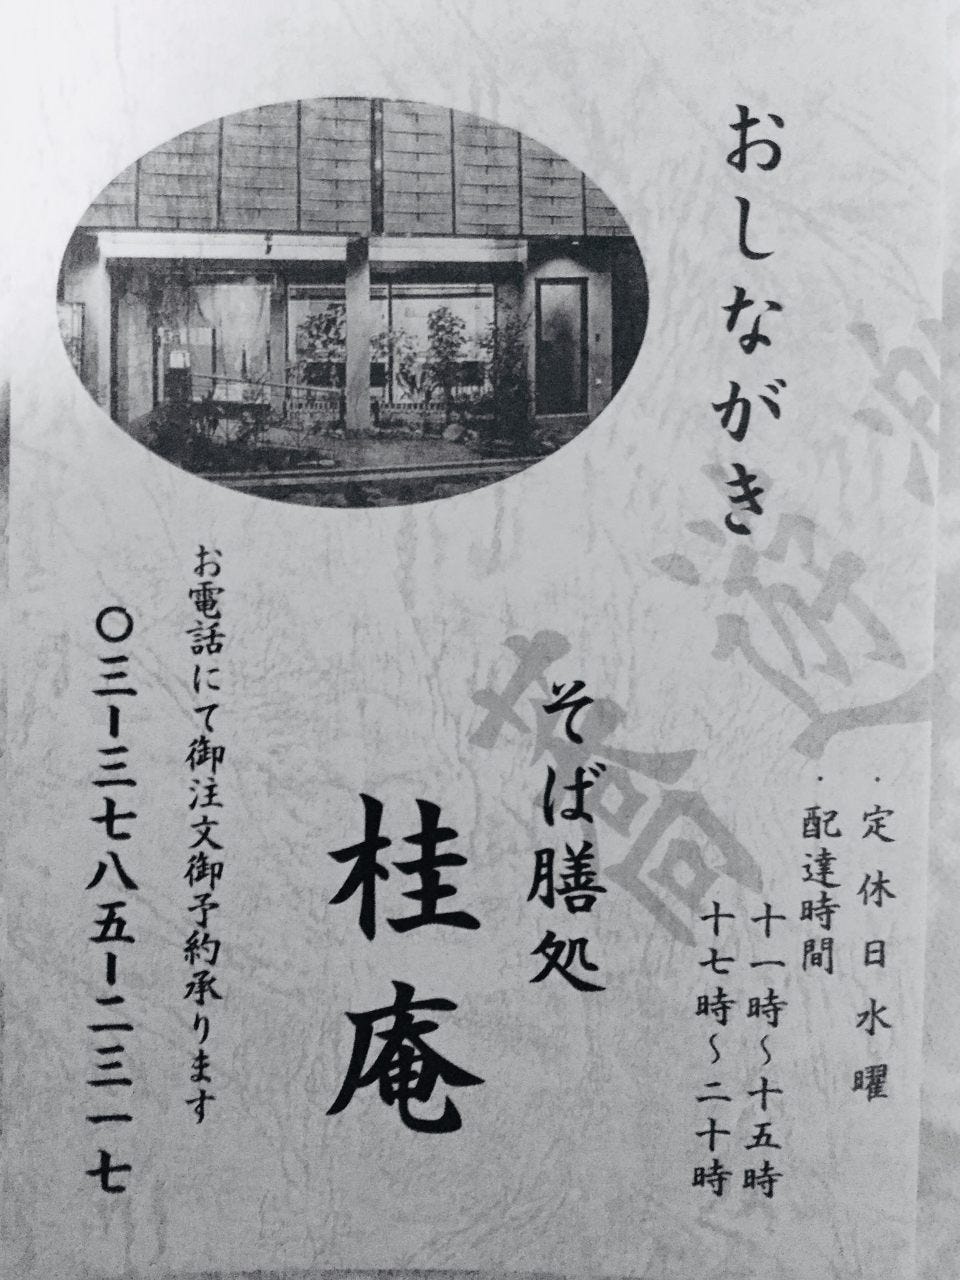 おしながき
・定休日 水曜
・配達時間
十一時～十五時
十七時～二十時
そば膳処
桂庵
お電話にて御注文御予約承ります
〇三ー三七八五ー二三一七